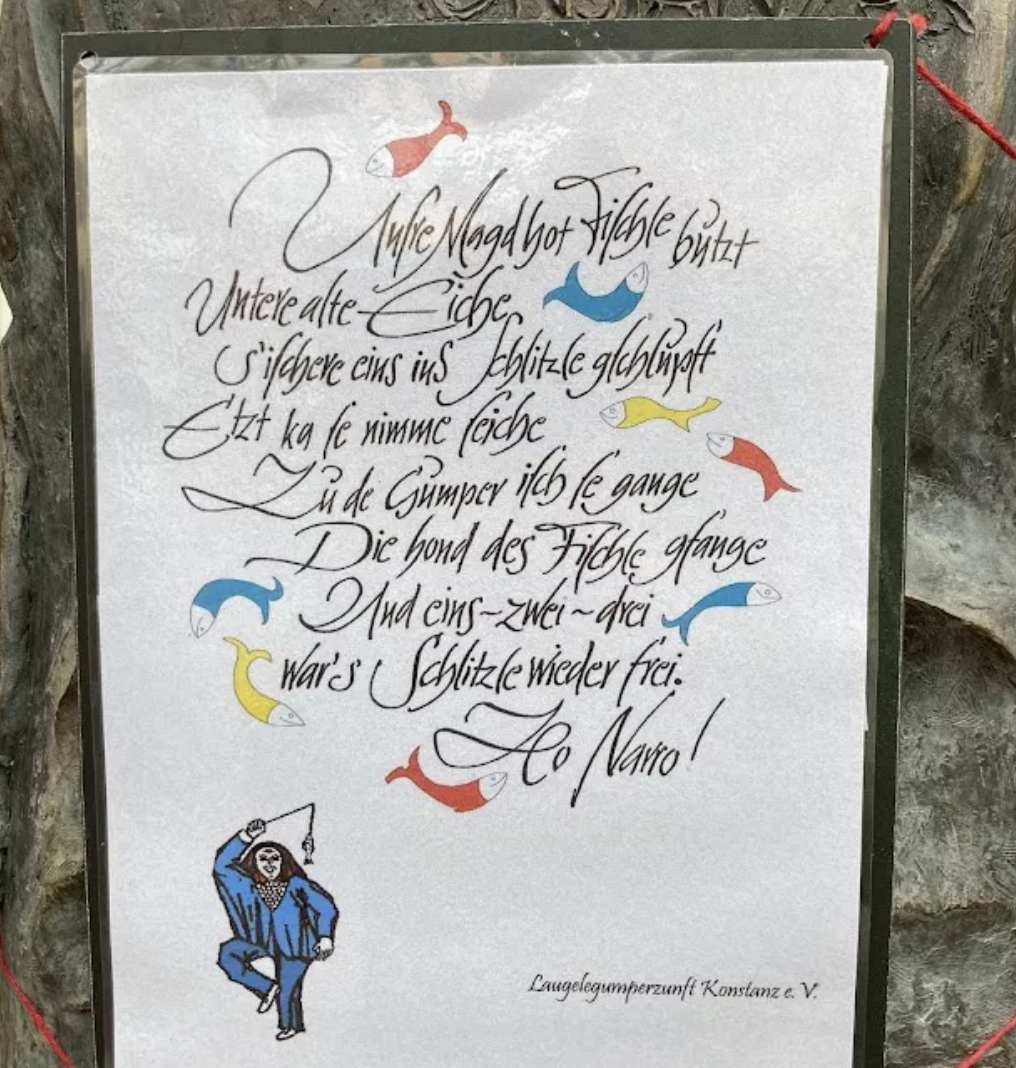 Unsre Magd hot Fischle bützt
Untere alte Eiche
S'ischere eins ins Schlitzle gschlüpft
Etzt ka se nimme seiche
Zu de Gumper isch se gange
Die hond des Fischle gfange
Und eins~zwei~drei
war's Schlitzle wieder frei.
Ho Narro!
Laugelegumperzunft Konstanz e. V.